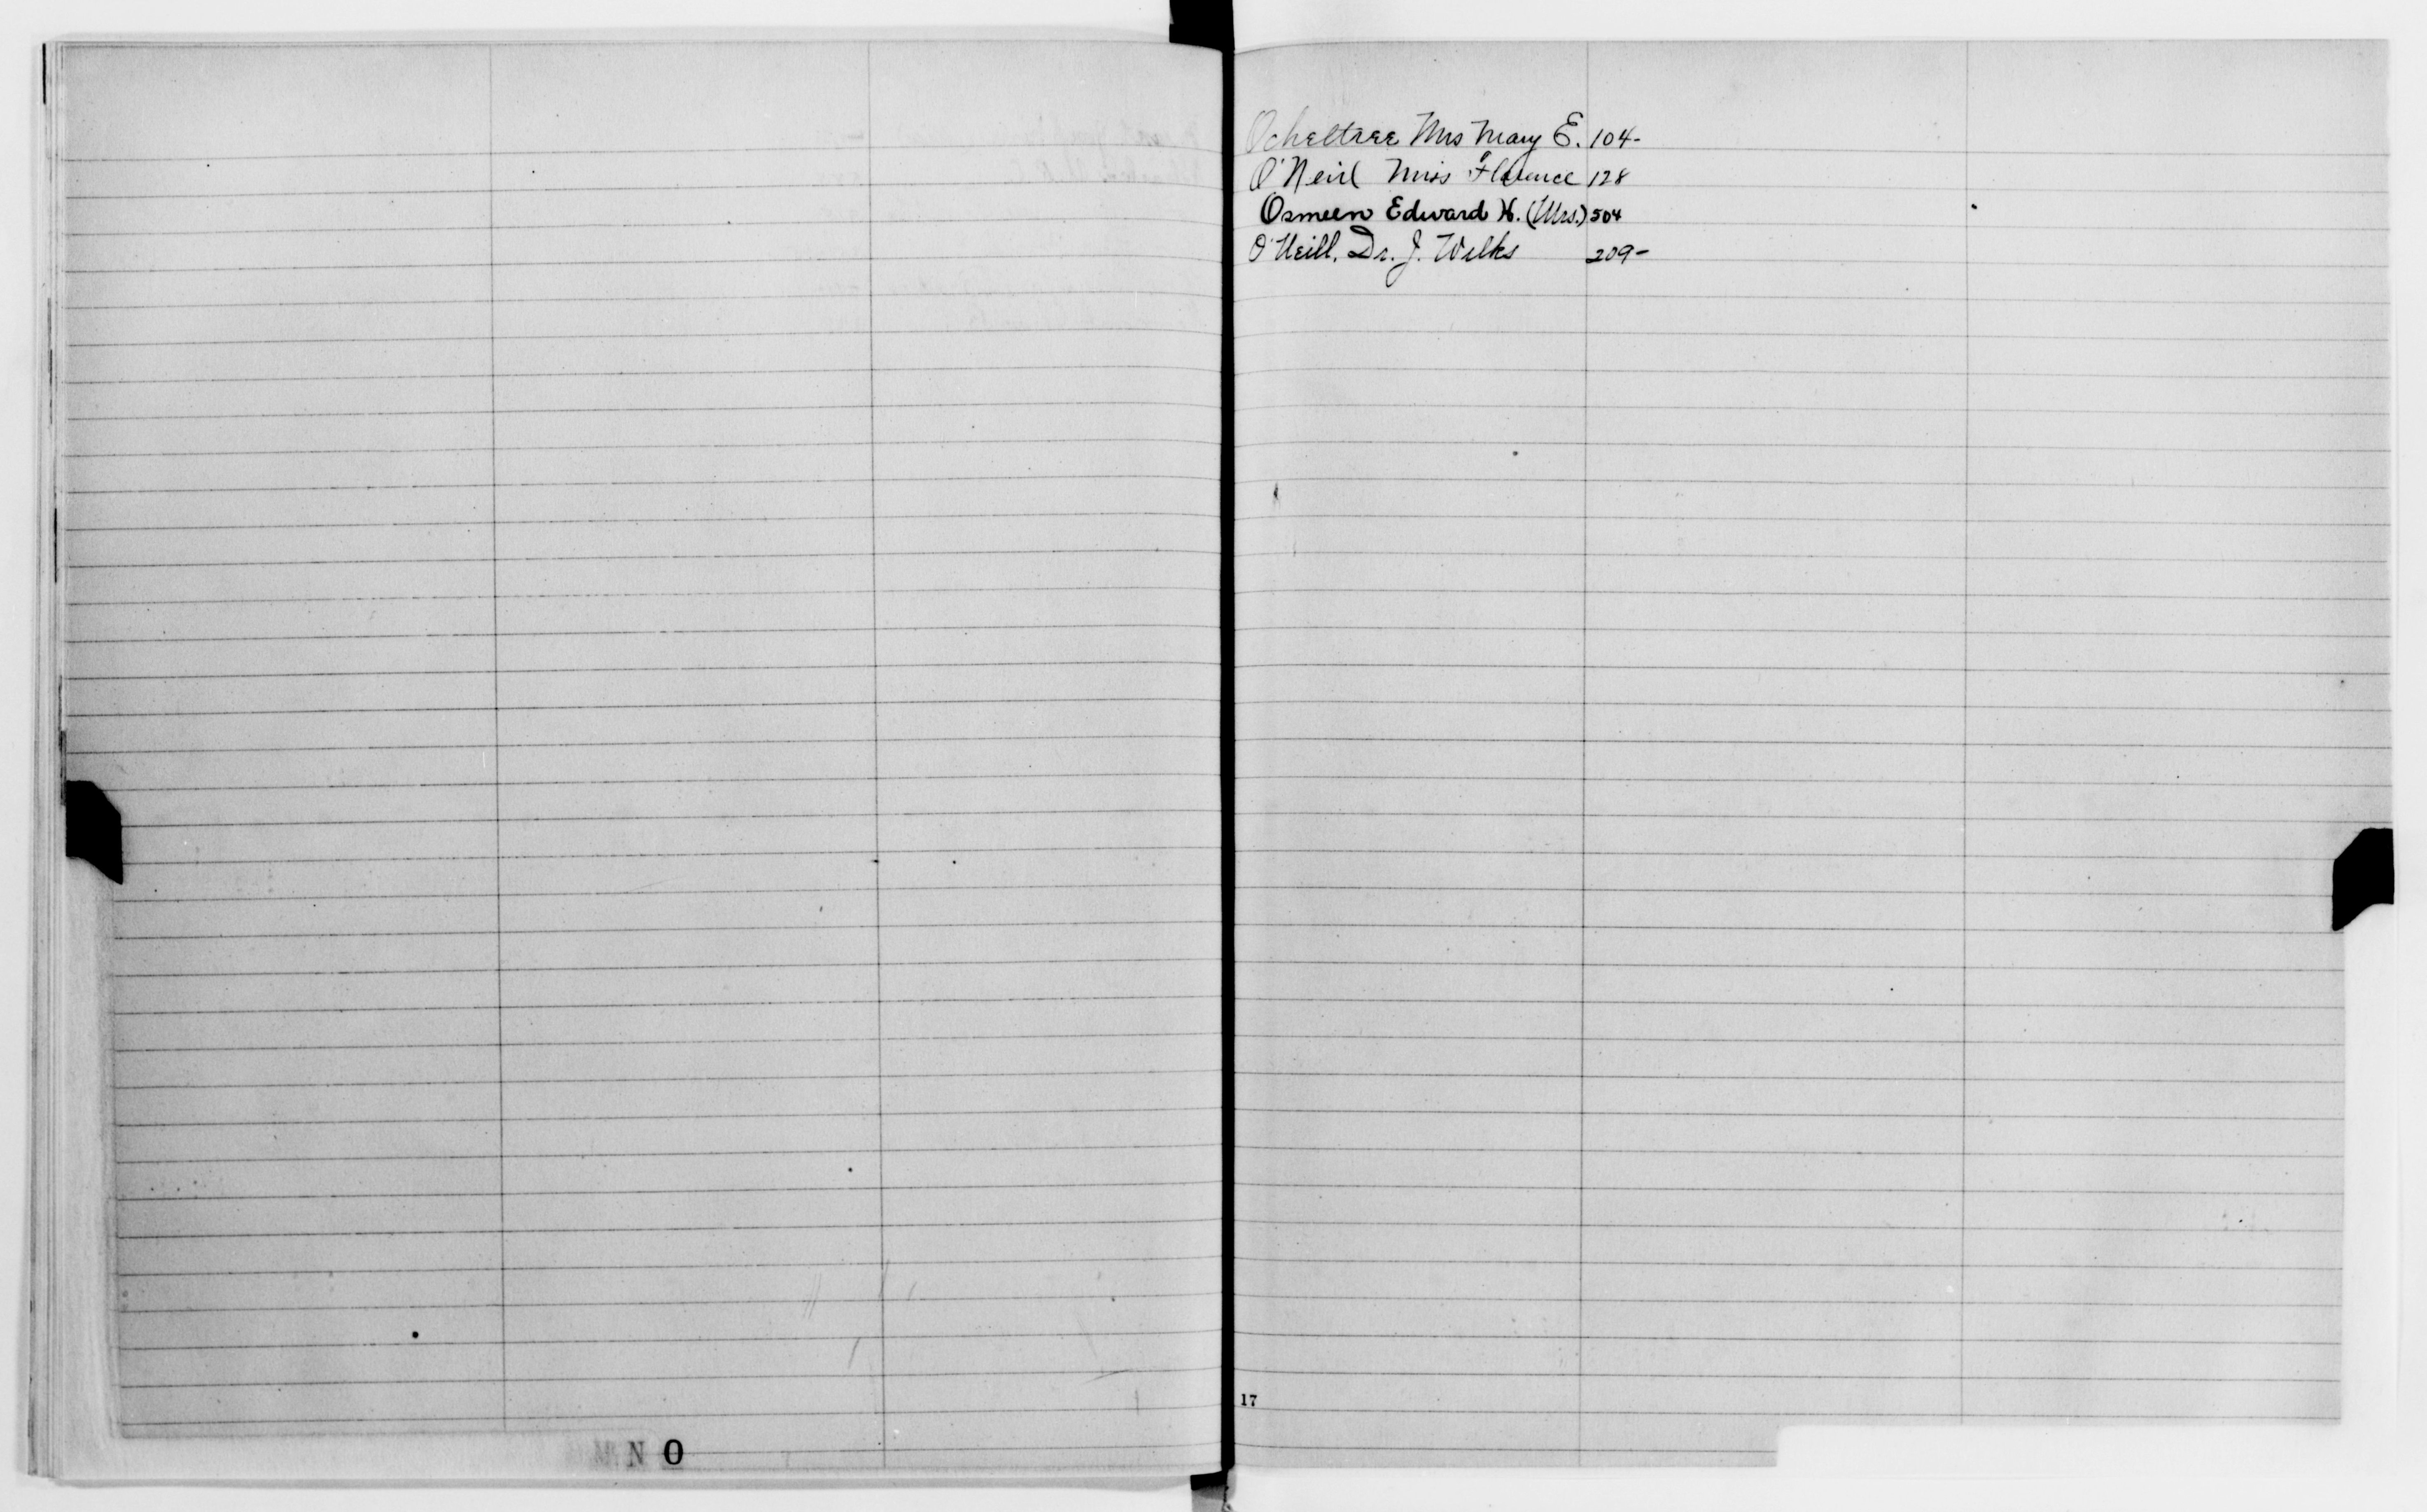 Ocheltree Mrs Mary E. 104-
O'Neil Miss Florence 128
Osmeen Edward H. (Mrs.) 504
O'Neill, Dr. J. Wilks 209-
17
M N O